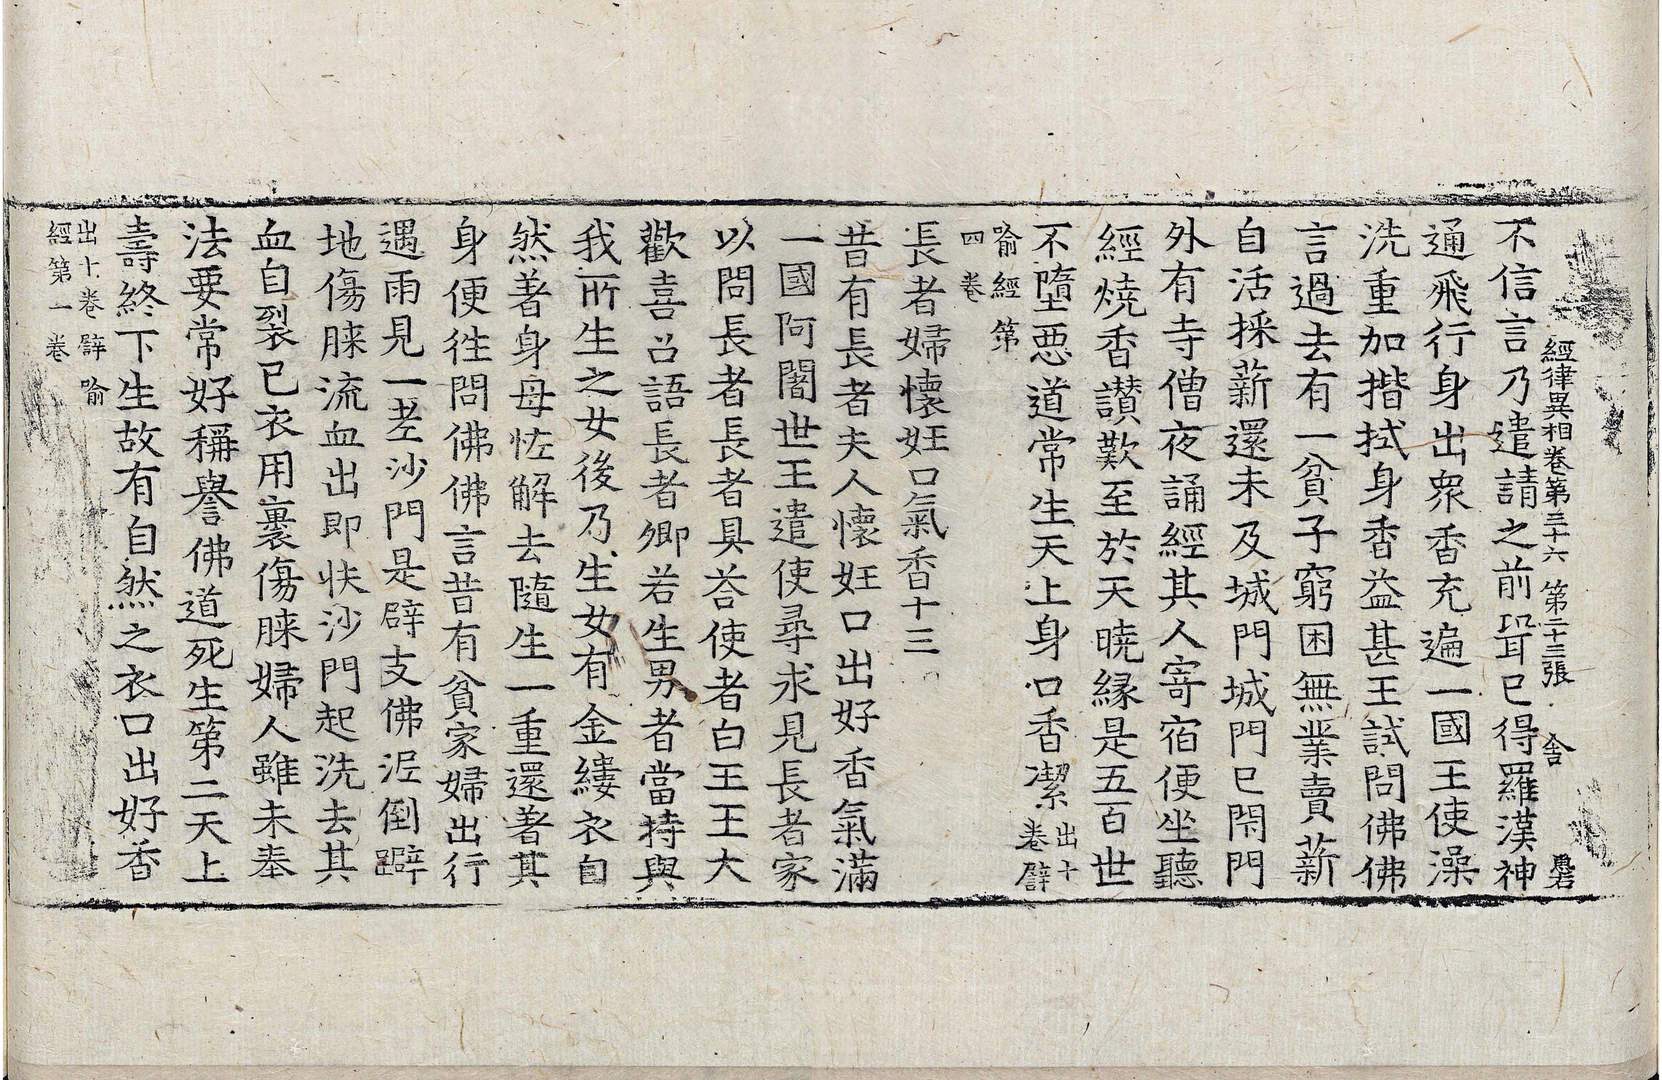 經律異相卷第三十六 第二十三張 舍
不信言乃遣請之前聓已得羅漢神
通飛行身出衆香充遍一國王使澡
洗重加揩拭身香益甚王試問佛佛
言過去有一貧子窮困無業賣薪
自活採薪還未及城門城門已閇門
外有寺僧夜誦經其人寄宿便坐聽
經燒香讃歎至於天曉縁是五百世
不墮惡道常生天上身口香潔 出十
卷譬
喻經第
四卷
長者婦懷妊口氣香十三
昔有長者夫人懷妊口出好香氣滿
一國阿闍世王遣使尋求見長者家
以問長者長者具荅使者白王王大
歡喜召語長者卿若生男者當持與
我所生之女後乃生女有金縷衣自
然著身母恠解去隨生一重還著其
身便徃問佛佛言昔有貧家婦出行
遇雨見一老沙門是辟支佛泥倒躃
地傷𦟛流血出即扶沙門起洗去其
血自裂已衣用裹傷𦟛婦人雖未奉
法要常好稱譽佛道死生第二天上
壽終下生故有自然之衣口出好香
出十卷譬喻
經第一卷